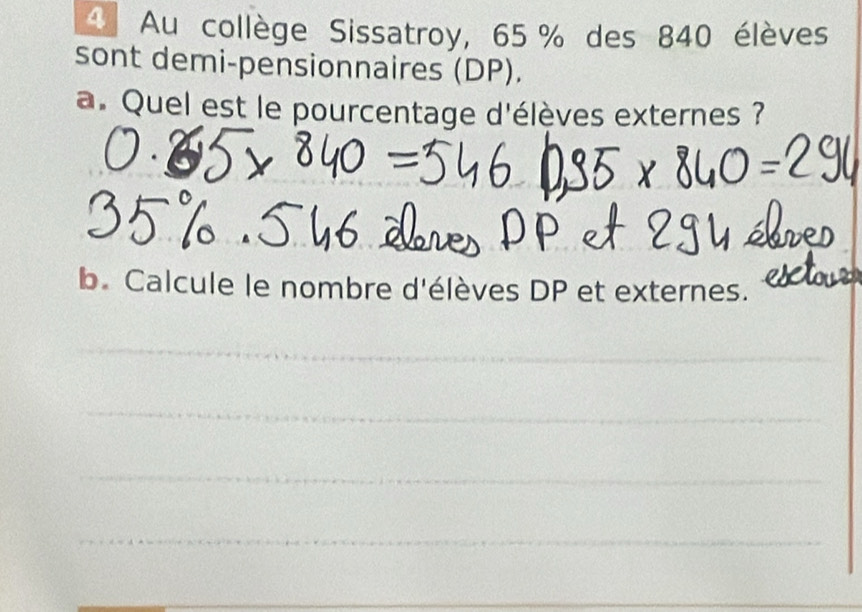 4 Au collège Sissatroy, 65 % des 840 élèves
sont demi-pensionnaires (DP).
a. Quel est le pourcentage d'élèves externes ?
0.65 x 840 = 546 0,35 x 840 = 294
35%. 546 élèves DP et 294 élèves
b. Calcule le nombre d'élèves DP et externes.